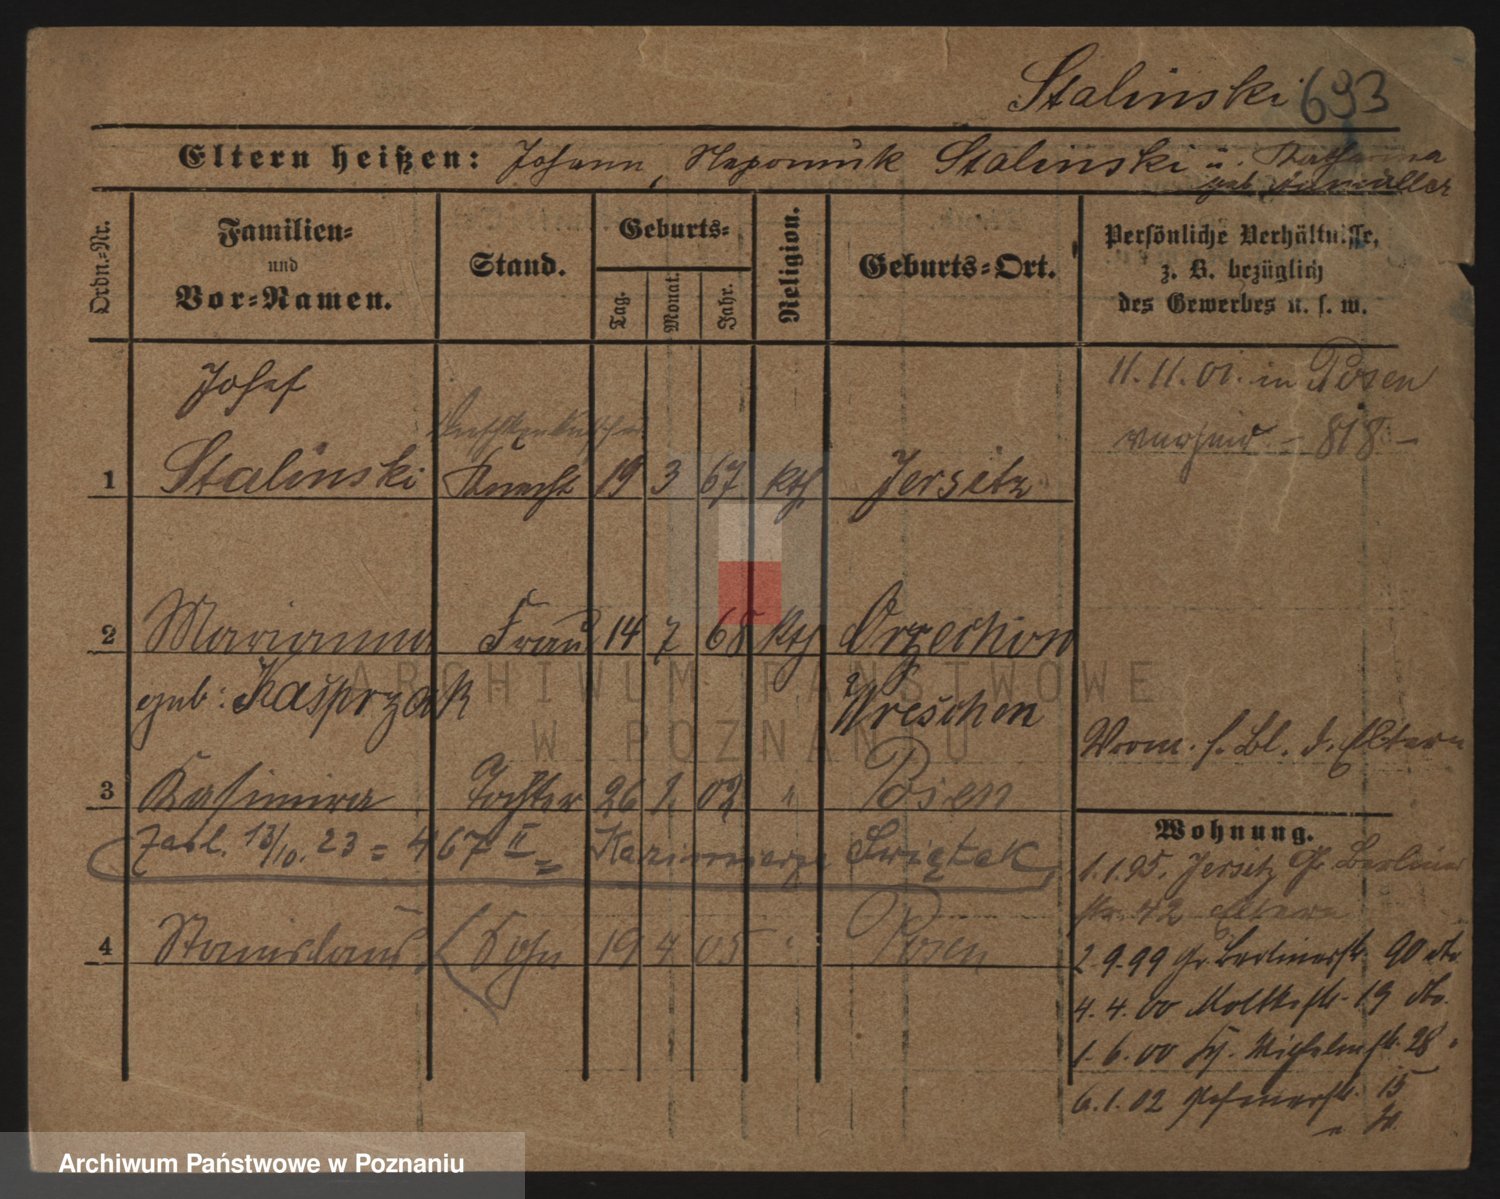 Stalinski 693
Eltern heißen: Johann, Nepomuk Stalinski u. Katharina
geb.
Ordn.-Nr.
Familien-
und
Vor-Namen.
Stand.
Geburts-
Tag.
Monat.
Jahr.
Religion.
Geburts-Ort.
Persönliche Verhältnisse,
z. B. bezüglich
des Gewerbes u. s. w.
Josef
11.11.01. in Posen
- 818 -
1 Stalinski Knecht 19 3 67 kth Jersitz
2 Marianna Frau 14 7 68 kth Orzechowo
geb: Kasprzak Wreschen
Vorm. s. Bl. d. Eltern
3 Kasimira Tochter 26 02 " Posen
Wohnung.
Zasl. 13/10. 23 = 467 II = Kazimierza Świętek
1.1.95. Jersitz Gr. Berliner
str. 42 Eltern
4 Stanislaus Sohn 19 4 05 " Posen
2.9.99 Gr. Berlinerstr. 90
4.4.00 Moltkestr. 13
1.6.00 Wilhelmstr. 28
6.1.02 Posenerstr. 15
ARCHIWUM PAŃSTWOWE
W POZNANIU
Archiwum Państwowe w Poznaniu